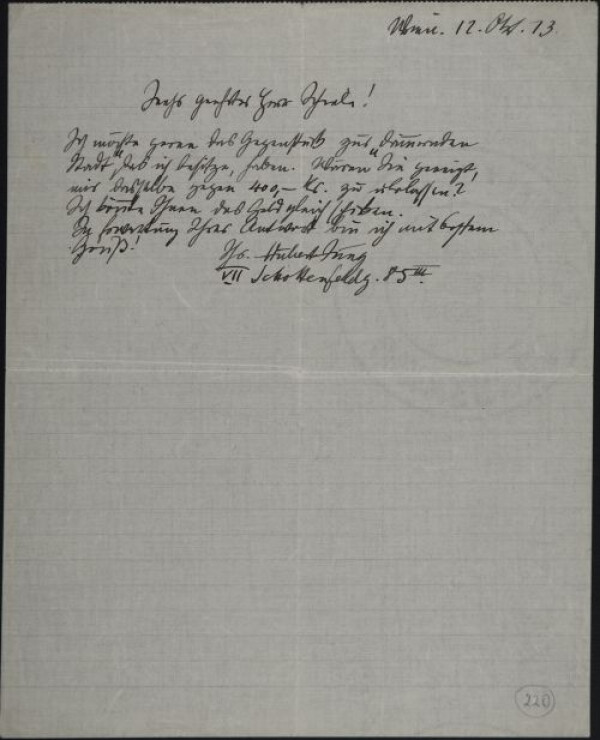 Wien. 12. Okt. 13
Sehr geehrter Herr Schiele!
Ich möchte gerne das Gegenstück zur "dämmernden
Stadt", das ich besitze, haben. Wären Sie geneigt,
mir dasselbe gegen 400,– Kr. zu überlassen?
Ich könnte Ihnen das Geld gleich schicken.
In Erwartung Ihrer Antwort bin ich mit bestem
Gruß!
Ihr Hubert Jung
VII Schottenfeldg. 85 III.
220